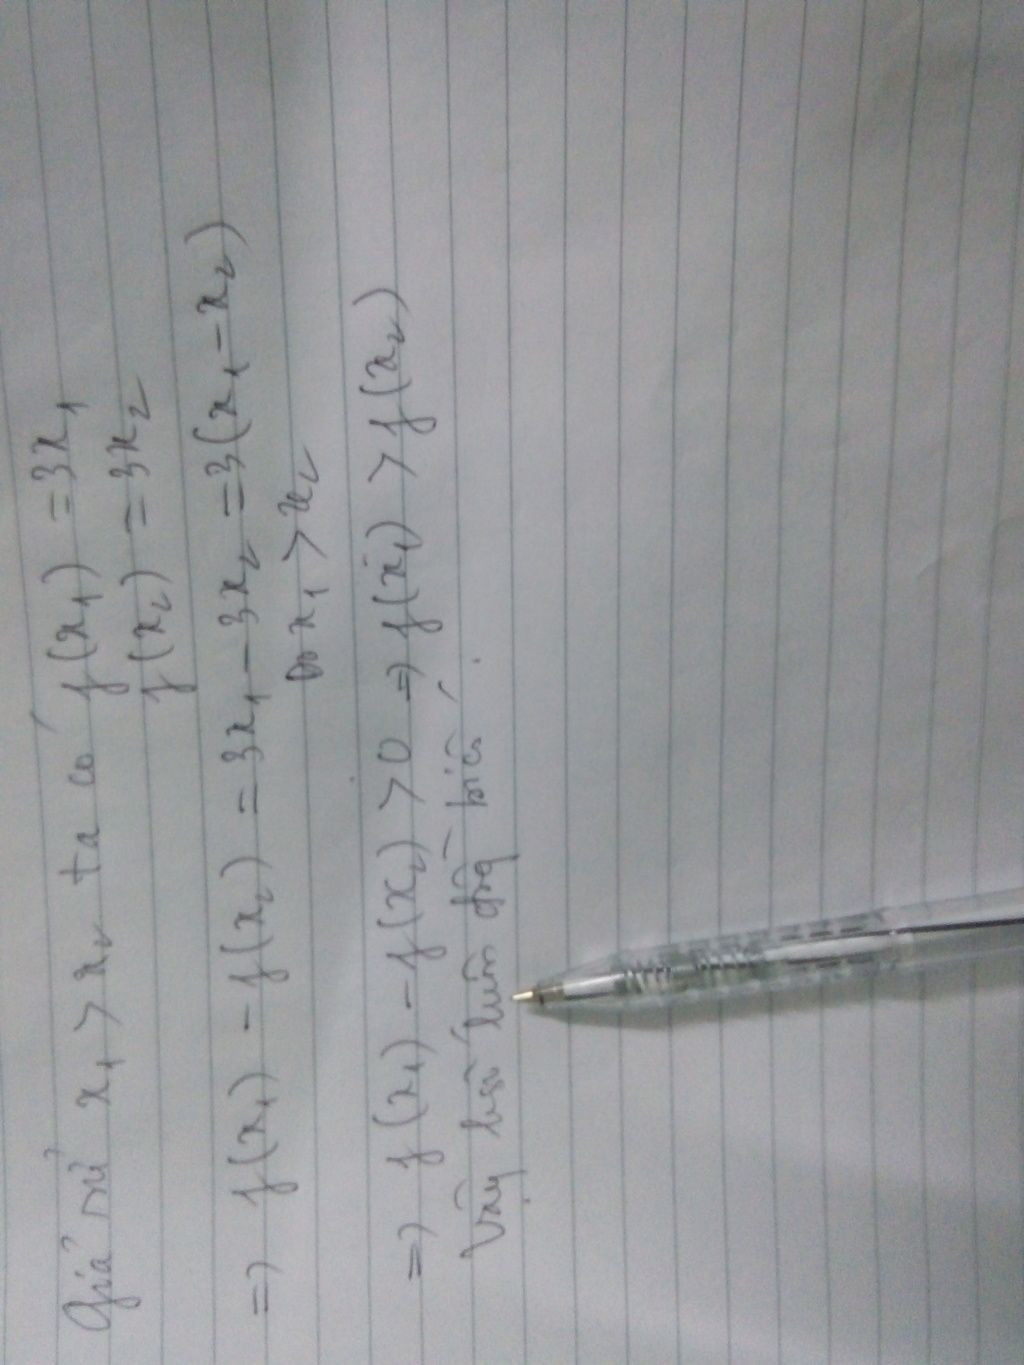 Giả sử x₁ > x₂ ta có f(x₁) = 3x₁
f(x₂) = 3x₂
=> f(x₁) - f(x₂) = 3x₁ - 3x₂ = 3(x₁ - x₂)
Do x₁ > x₂
=> f(x₁) - f(x₂) > 0 => f(x₁) > f(x₂)
Vậy hsố luôn đồng biến.